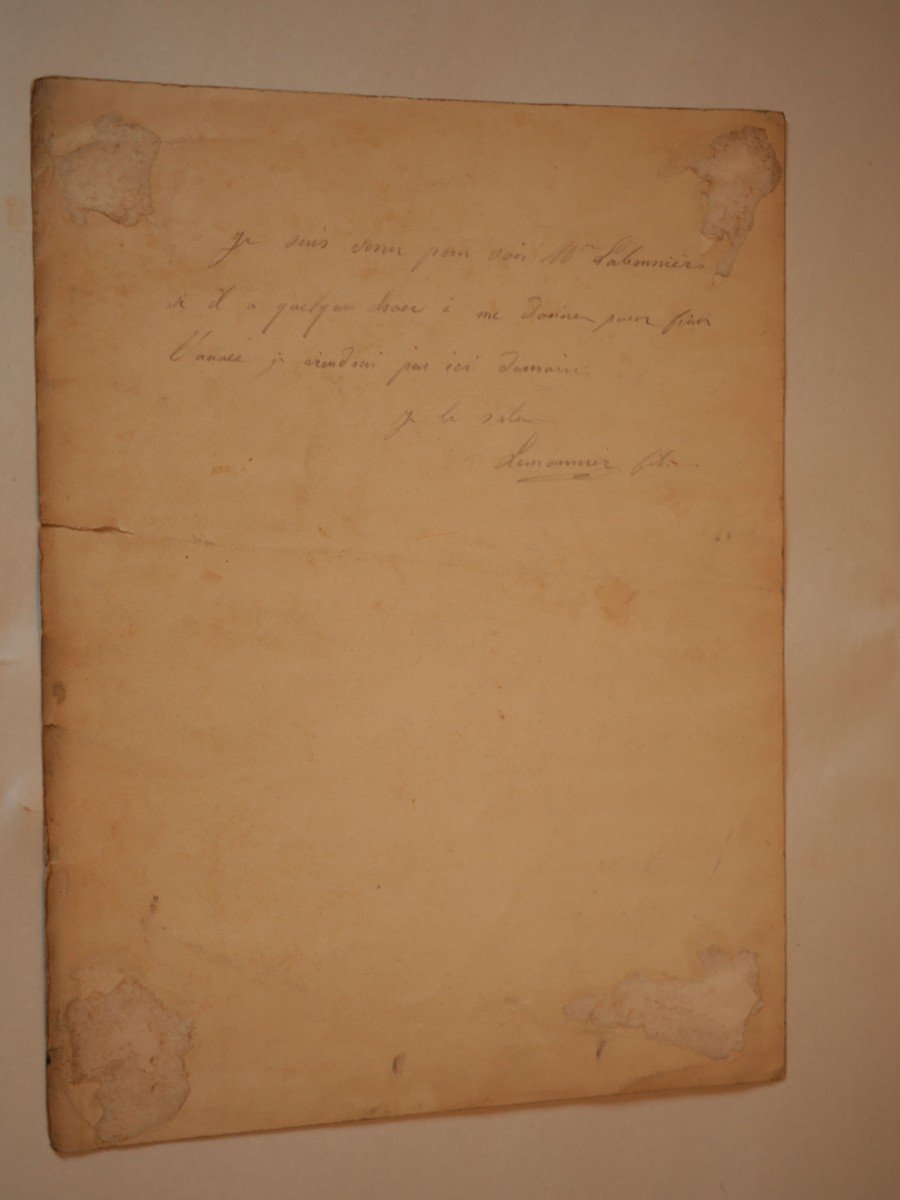 Je suis venu pour voir Mr Labonnière
si il a quelque chose à me donner pour finir
l'année je viendrai par ici demain.
Je le salue
Lemonnier fils